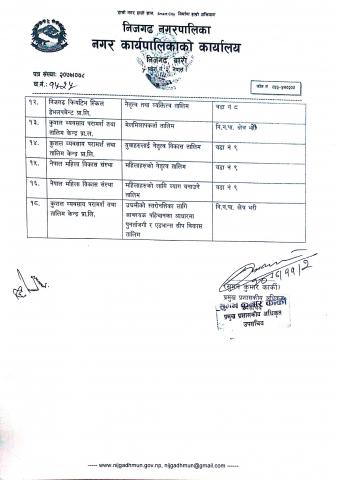 "हाम्रो नगर हाम्रो शान, Smart City निर्माण हाम्रो अभियान"
निजगढ नगरपालिका
नगर कार्यपालिकाको कार्यालय
निजगढ, बारा
प्रदेश नं. २, नेपाल
पत्र संख्याः २०७७।०७८
च.नं.: १५२५
फोन नं. ०५३-५४०२०१
१२. निजगढ क्रियटिभ स्किल डेभलपमेन्ट प्रा.लि. नेतृत्व तथा व्यक्तित्व तालिम वडा नं ८
१३. कुशल व्यवसाय परामर्श तथा तालिम केन्द्र प्रा.लि. मेलमिलापकर्ता तालिम नि.न.पा. क्षेत्र भरी
१४. कुशल व्यवसाय परामर्श तथा तालिम केन्द्र प्रा.लि. युवाहरुलाई नेतृत्व विकास तालिम वडा नं ९
१५. नेपाल महिला विकास संस्था महिलाहरुको नेतृत्व तालिम वडा नं ९
१६. नेपाल महिला विकास संस्था महिलाहरुको लागि ब्याग बनाउने तालिम वडा नं ९
१८. कुशल व्यवसाय परामर्श तथा तालिम केन्द्र प्रा.लि. उद्यमीको स्तरोन्नतिका लागि आवश्यक पहिचानका आधारमा पुनर्ताजगी र एडभान्स सीप विकास तालिम नि.न.पा. क्षेत्र भरी
(सुमन कुमार कार्की)
प्रमुख प्रशासकीय अधिकृत
सुमन कुमार कार्की
प्रमुख प्रशासकीय अधिकृत
उपसचिव
----- www.nijgadhmun.gov.np, nijgadhmun@gmail.com -----